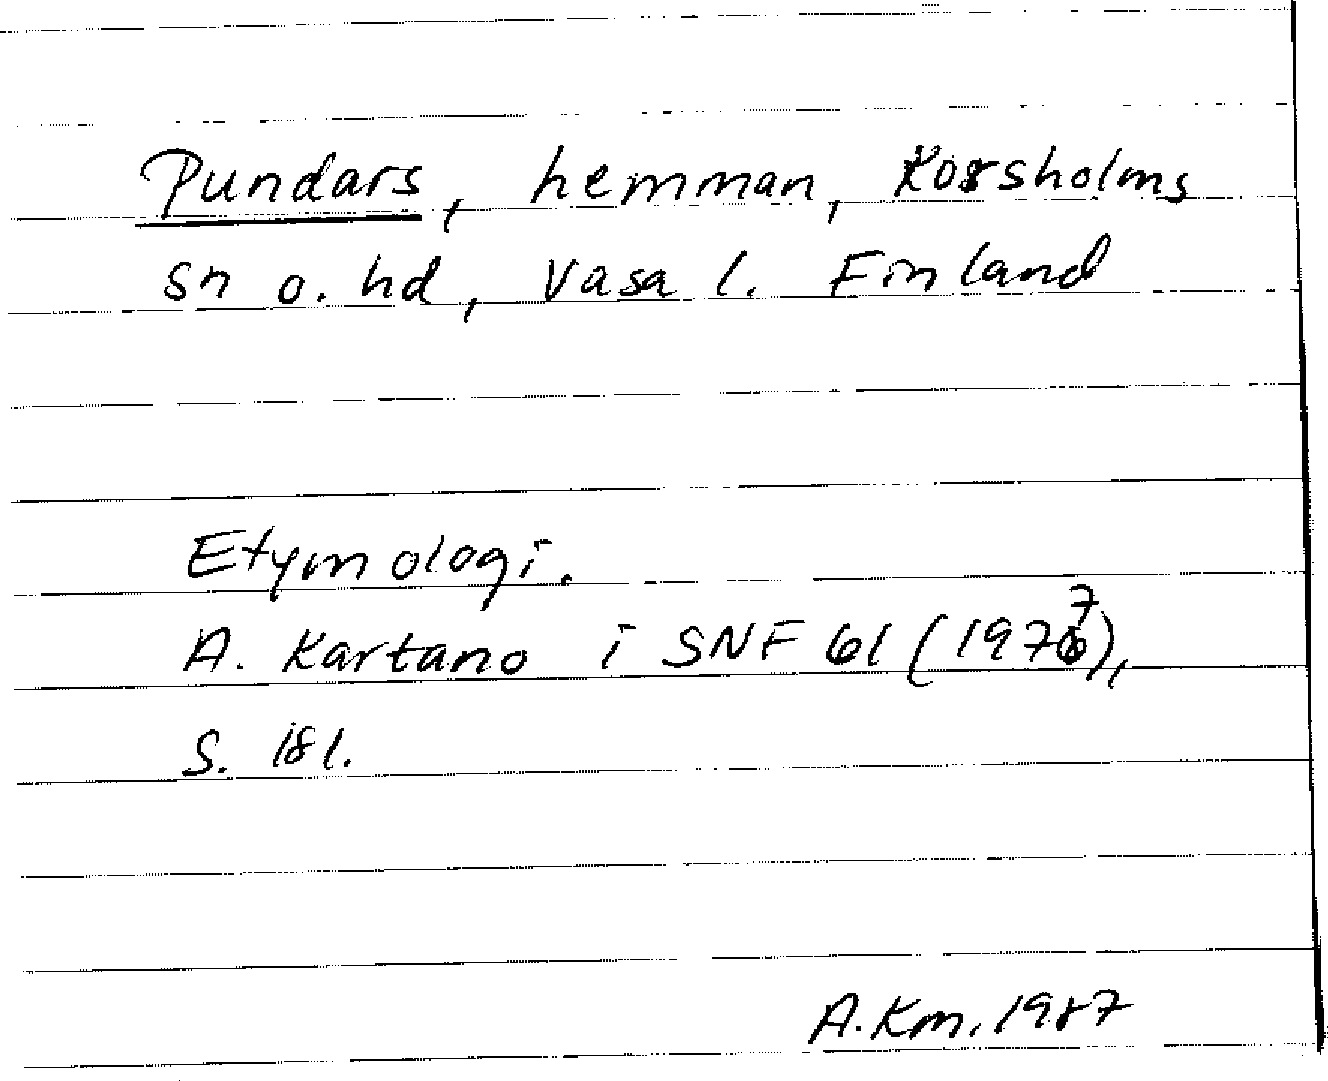 Pundars, hemman, Korsholms
sn o. hd, Vasa l. Finland
Etymologi.
A. Kartano i SNF 61 (1977),
S. 181.
A.Km. 1987